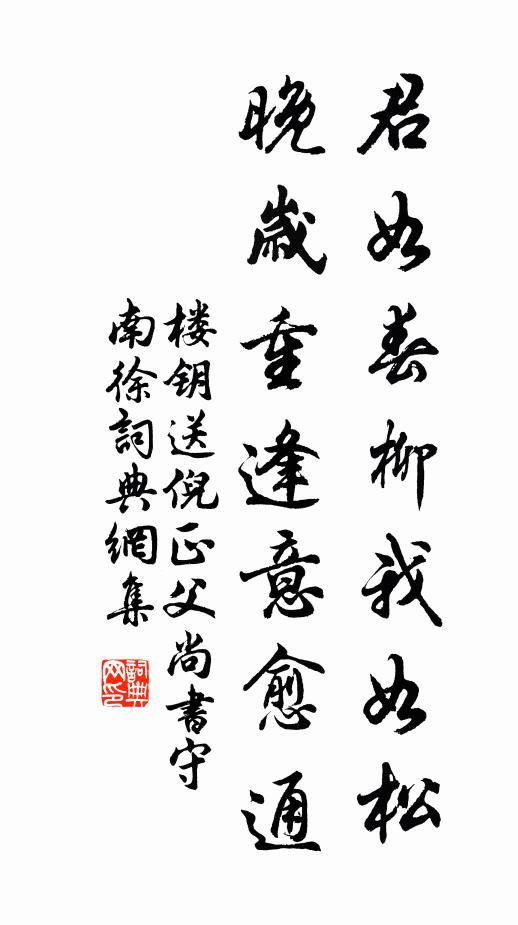 君如春柳我如松
晚歲重逢意愈通
楼钥送倪正父尚書守
南徐詞典網集
詞典网印